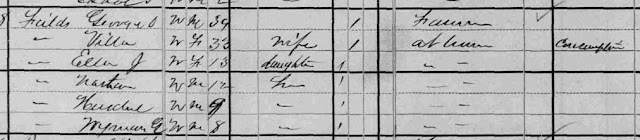 8 Fields George O W M 39 1 Farmer
— Villa W F 33 wife 1 at home Consumption
— Ella J W F 13 daughter 1 " "
— Nathan W M 12 Son 1 " "
— W M 9 — 1 — —
— Wyman G W M 8 — 1 — —